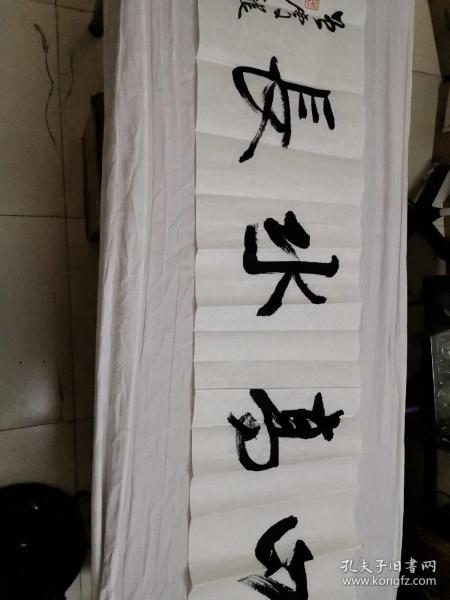 山高水長
孔夫子旧书网
www.kongfz.com